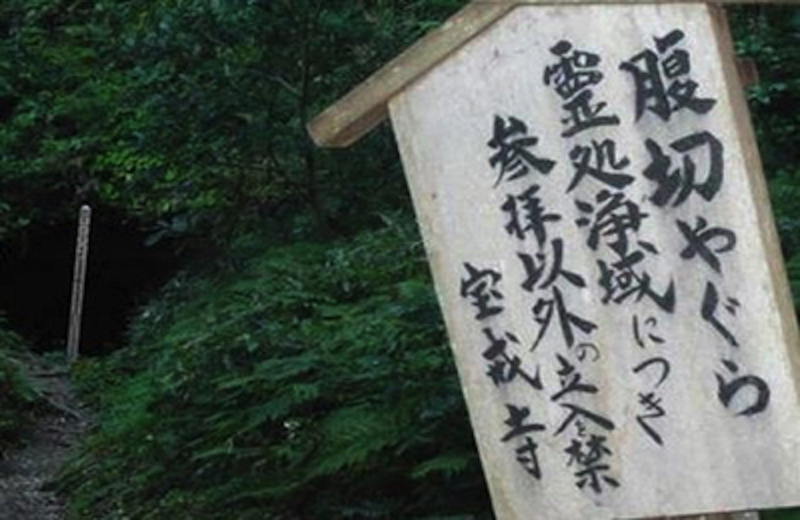 腹切やぐら
霊処浄域につき
参拝以外の立入禁
宝戒寺